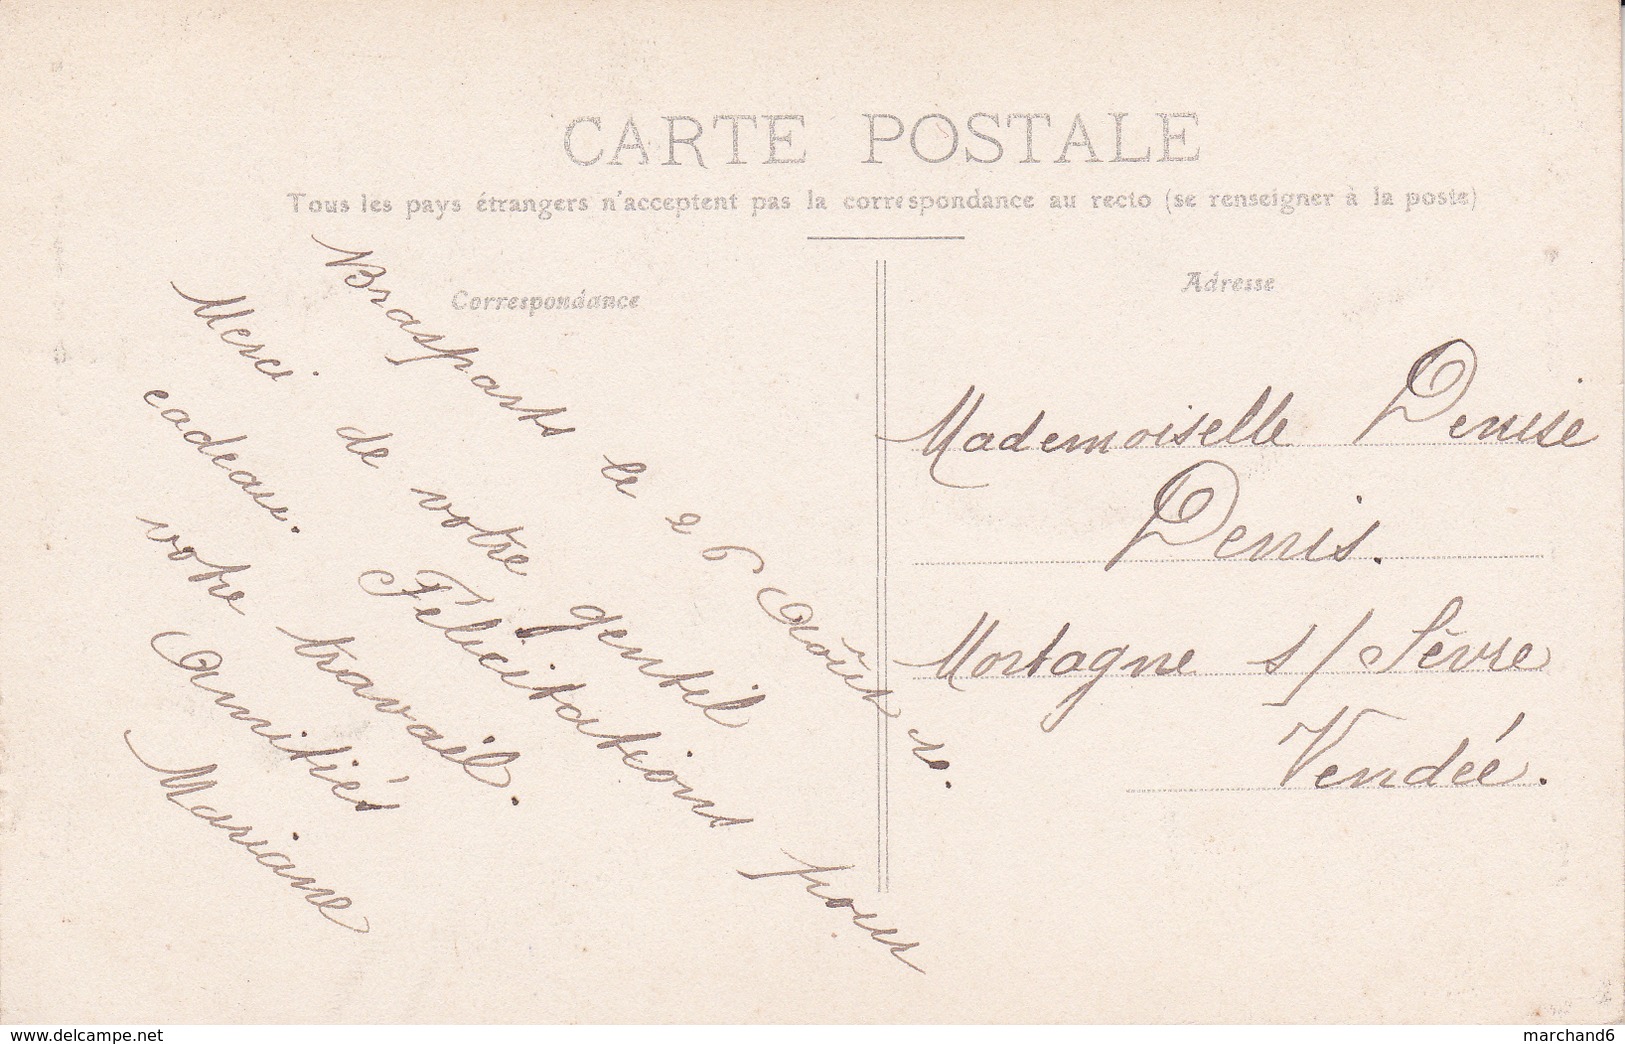 CARTE POSTALE
Tous les pays étrangers n'acceptent pas la correspondance au recto (se renseigner à la poste)
Correspondance
Brasparts le 26 Août
Merci de votre gentil
cadeau. Félicitations pour
votre travail.
Amitiés
Mariane
Adresse
Mademoiselle Denise
Denis.
Mortagne s/ Sèvre
Vendée.
www.delcampe.net
marchand6